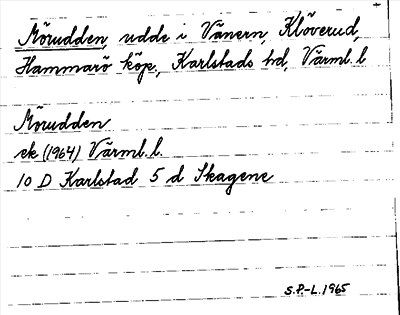 Mörudden, udde i Vänern, Klöverud,
Hammarö köp., Karlstads hd, Värml. l
Mörudden
ek (1964) Värml. l.
10 D Karlstad 5 d Skagene
S.P.-L. 1965